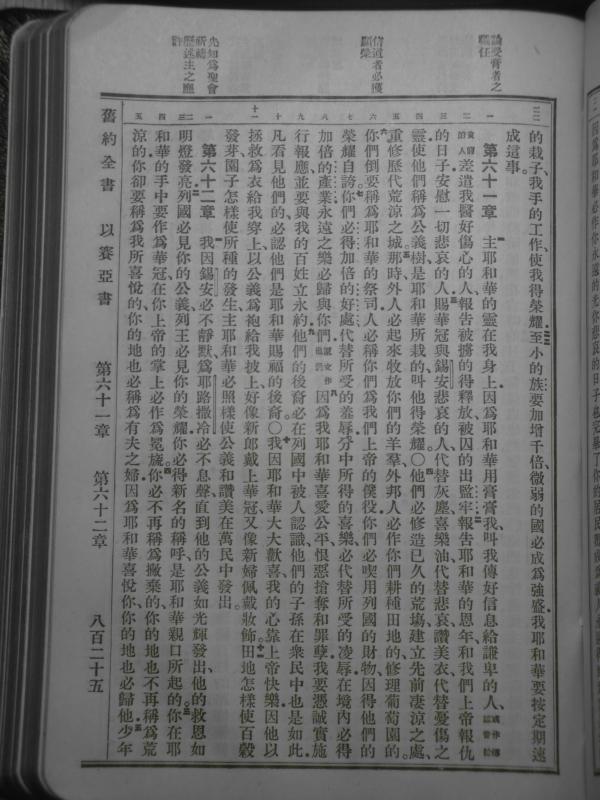 論受膏者之
職任
信道者必獲
顯榮
先知爲聖會
祈禱
歷述主之應
許
的栽子我手的工作使我得榮耀至小的族要加增千倍微弱的國必成爲強盛我耶和華要按定期速
成這事
第六十一章 主耶和華的靈在我身上因爲耶和華用膏膏我叫我傳好信息給謙卑的人
差遣我醫好傷心的人報告被擄的得釋放被囚的出監牢報告耶和華的恩年和我們上帝報仇
的日子安慰一切悲哀的人賜華冠與錫安悲哀的人代替灰塵喜樂油代替悲哀讚美衣代替憂傷之
靈使他們稱爲公義樹是耶和華所栽的叫他得榮耀〇他們必修造已久的荒場建立先前淒涼之處
重修歷代荒涼之城那時外人必起來牧放你們的羊羣外邦人必作你們耕種田地的修理葡萄園的
你們倒要稱爲耶和華的祭司人必稱你們爲我們上帝的僕役你們必喫用列國的財物因得他們的
榮耀自誇你們必得加倍的好處代替所受的羞辱分中所得的喜樂必代替所受的凌辱在境內必得
加倍的產業永遠之樂必歸與你們因爲我耶和華喜愛公平恨惡搶奪和罪孽我要憑誠實施
行報應並要與我的百姓立永約他們的後裔必在列國中被人認識他們的子孫在衆民中也是如此
凡看見他們的必認他們是耶和華賜福的後裔〇我因耶和華大大歡喜我的心靠上帝快樂因他以
拯救爲衣給我穿上以公義爲袍給我披上好像新郎戴上華冠又像新婦佩戴妝飾田地怎樣使百穀
發芽園子怎樣使所種的發生主耶和華必照樣使公義和讚美在萬民中發出
第六十二章 我因錫安必不靜默爲耶路撒冷必不息聲直到他的公義如光輝發出他的救恩如
明燈發亮列國必見你的公義列王必見你的榮耀你必得新名的稱呼是耶和華親口所起的你在耶
和華的手中要作爲華冠在你上帝的掌上必作爲冕旒你必不再稱爲撇棄的你的地也不再稱爲荒
涼的你卻要稱爲我所喜悅的你的地也必稱爲有夫之婦因爲耶和華喜悅你你的地也必歸他少年
舊約全書 以賽亞書 第六十一章 第六十二章 八百二十五